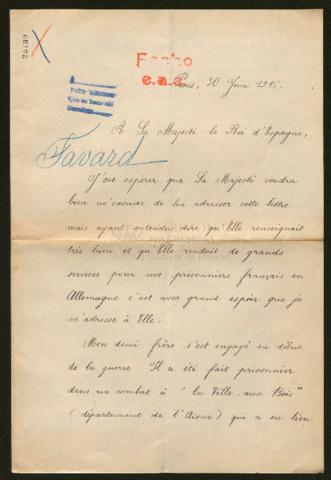 Fecho
e.a.c.
Paris, 30 Juin 1916.
A Sa Majesté le Roi d'Espagne,
Favard
J'ose espérer que Sa Majesté voudra
bien m'excuser de lui adresser cette lettre
mais ayant entendu dire qu'Elle renseignait
très bien et qu'Elle rendait de grands
services pour nos prisonniers français en
Allemagne c'est avec grand espoir que je
m'adresse à Elle.
Mon demi frère s'est engagé au début
de la guerre. Il a été fait prisonnier
dans un combat à "la Ville aux Bois"
(département de l'Aisne) qui a eu lieu